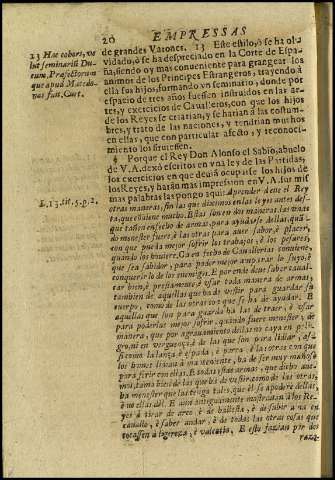 20 EMPRESSAS
13 Hæc cohors, ve-
lut seminariũ Du-
cum, Præfectorum
que apud Macedo-
nas fuit. Curt.
de grandes Varones. 13 Este estilo, ò se ha ol-
vidado, ò se ha despreciado en la Corte de Espa-
ña, siendo oy mas conveniente para grangear los
animos de los Principes Estrangeros, trayendo à
ella sus hijos, formando vn seminario, donde por
espacio de tres años fuessen instruìdos en las ar-
tes, y exercicios de Cavalleros, con que los hijos
de los Reyes se criarian, y se harian à las costum-
bres, y trato de las naciones, y tendrian muchos
en ellas, que con particular afecto, y reconoci-
miento los sirviessen.
§ Porque el Rey Don Alonso el Sabio, abuelo
de V.A. dexò escritos en vna ley de las Partidas,
los exercicios en que devia ocuparse los hijos de
los Reyes, y haràn mas impression en V.A. sus mis-
mas palabras las pongo aqui: Aprender deve el Rey
L.13. tit. 5. p. 2.
otras maneras, sin las que diximos en las leyes antes des-
ta, que cõviene mucho. Estas son en dos maneras, las vnas
que tañen en fecho de armas, para ayudarse dellas, quã-
do menester fuere, è las otras para aver sabor, è placer,
con que pueda mejor sofrir los trabajos, è los pesares,
quando los huviere. Ca en fecho de Cavalleria conviene,
que sea sabidor, para poder mejor amparar lo suyo, è
conquerir lo de los enemigos. E por ende deve saber caval-
gar bien, è prestamente è vsar toda manera de armas,
tambien de aquellas que ha de vestir para guardar su
cuerpo, como de las otras con que se ha de ayudar. E
aquellas que son para guarda ha las de traer, è vsar
para poderlas mejor sofrir, quando fuere menester, de
manera, que por agravamiento dellas no caya en peli-
gro, ni en verguença, è de las que son para lidiar, assi
como la lança, è espada, è porra, è las otras con que
los homes lidian à manteniente, ha de ser muy mañoso
para ferir con ellas. E todas estas armas, que dicho ave-
mos, tambien de las que ha de vestir como de las otras,
ha menester que las tenga tales, que èl se apodere dellas,
è no ellas dèl. E aun antiguamente mostravan à los Re-
yes à tirar de arco, è de ballesta, è de subir ayna en
cavallo, è saber nadar, è de todas las otras cosas que
tocassen à ligereza, è valentia. E esto fazian por dos
razo-